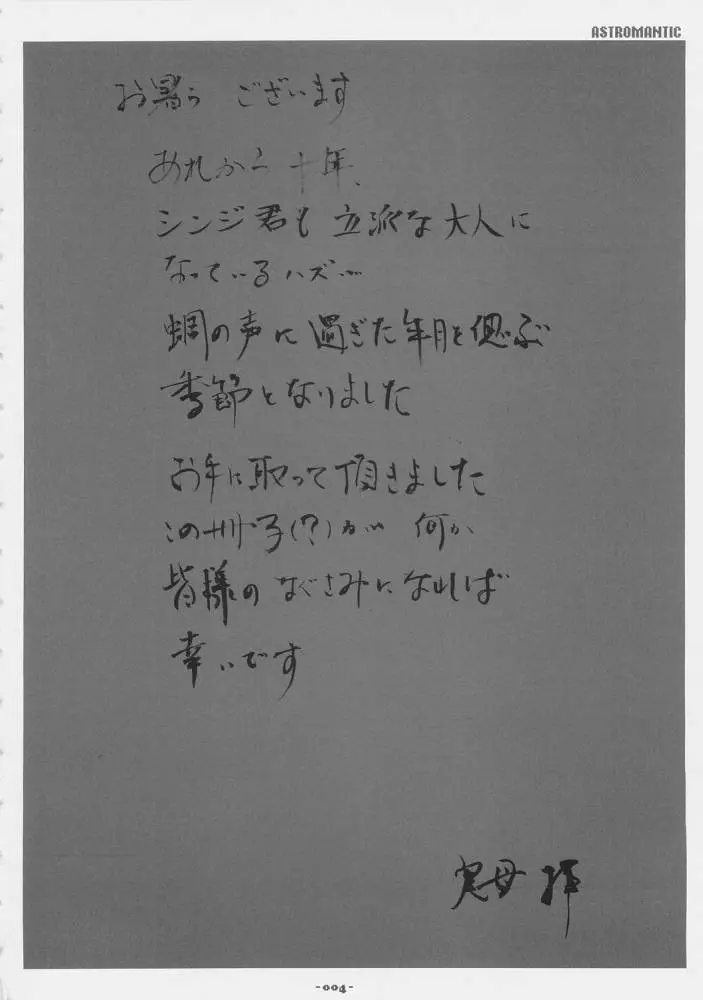 ASTROMANTIC
お暑う ございます
あれから 十年、
シンジ君も 立派な 大人に
なっているハズ…
蜩の声に 過ぎた年月を偲ぶ
季節となりました
お手に取って頂きました
この冊子(?)が 何か
皆様の なぐさみに なれば
幸いです
拝
-004-